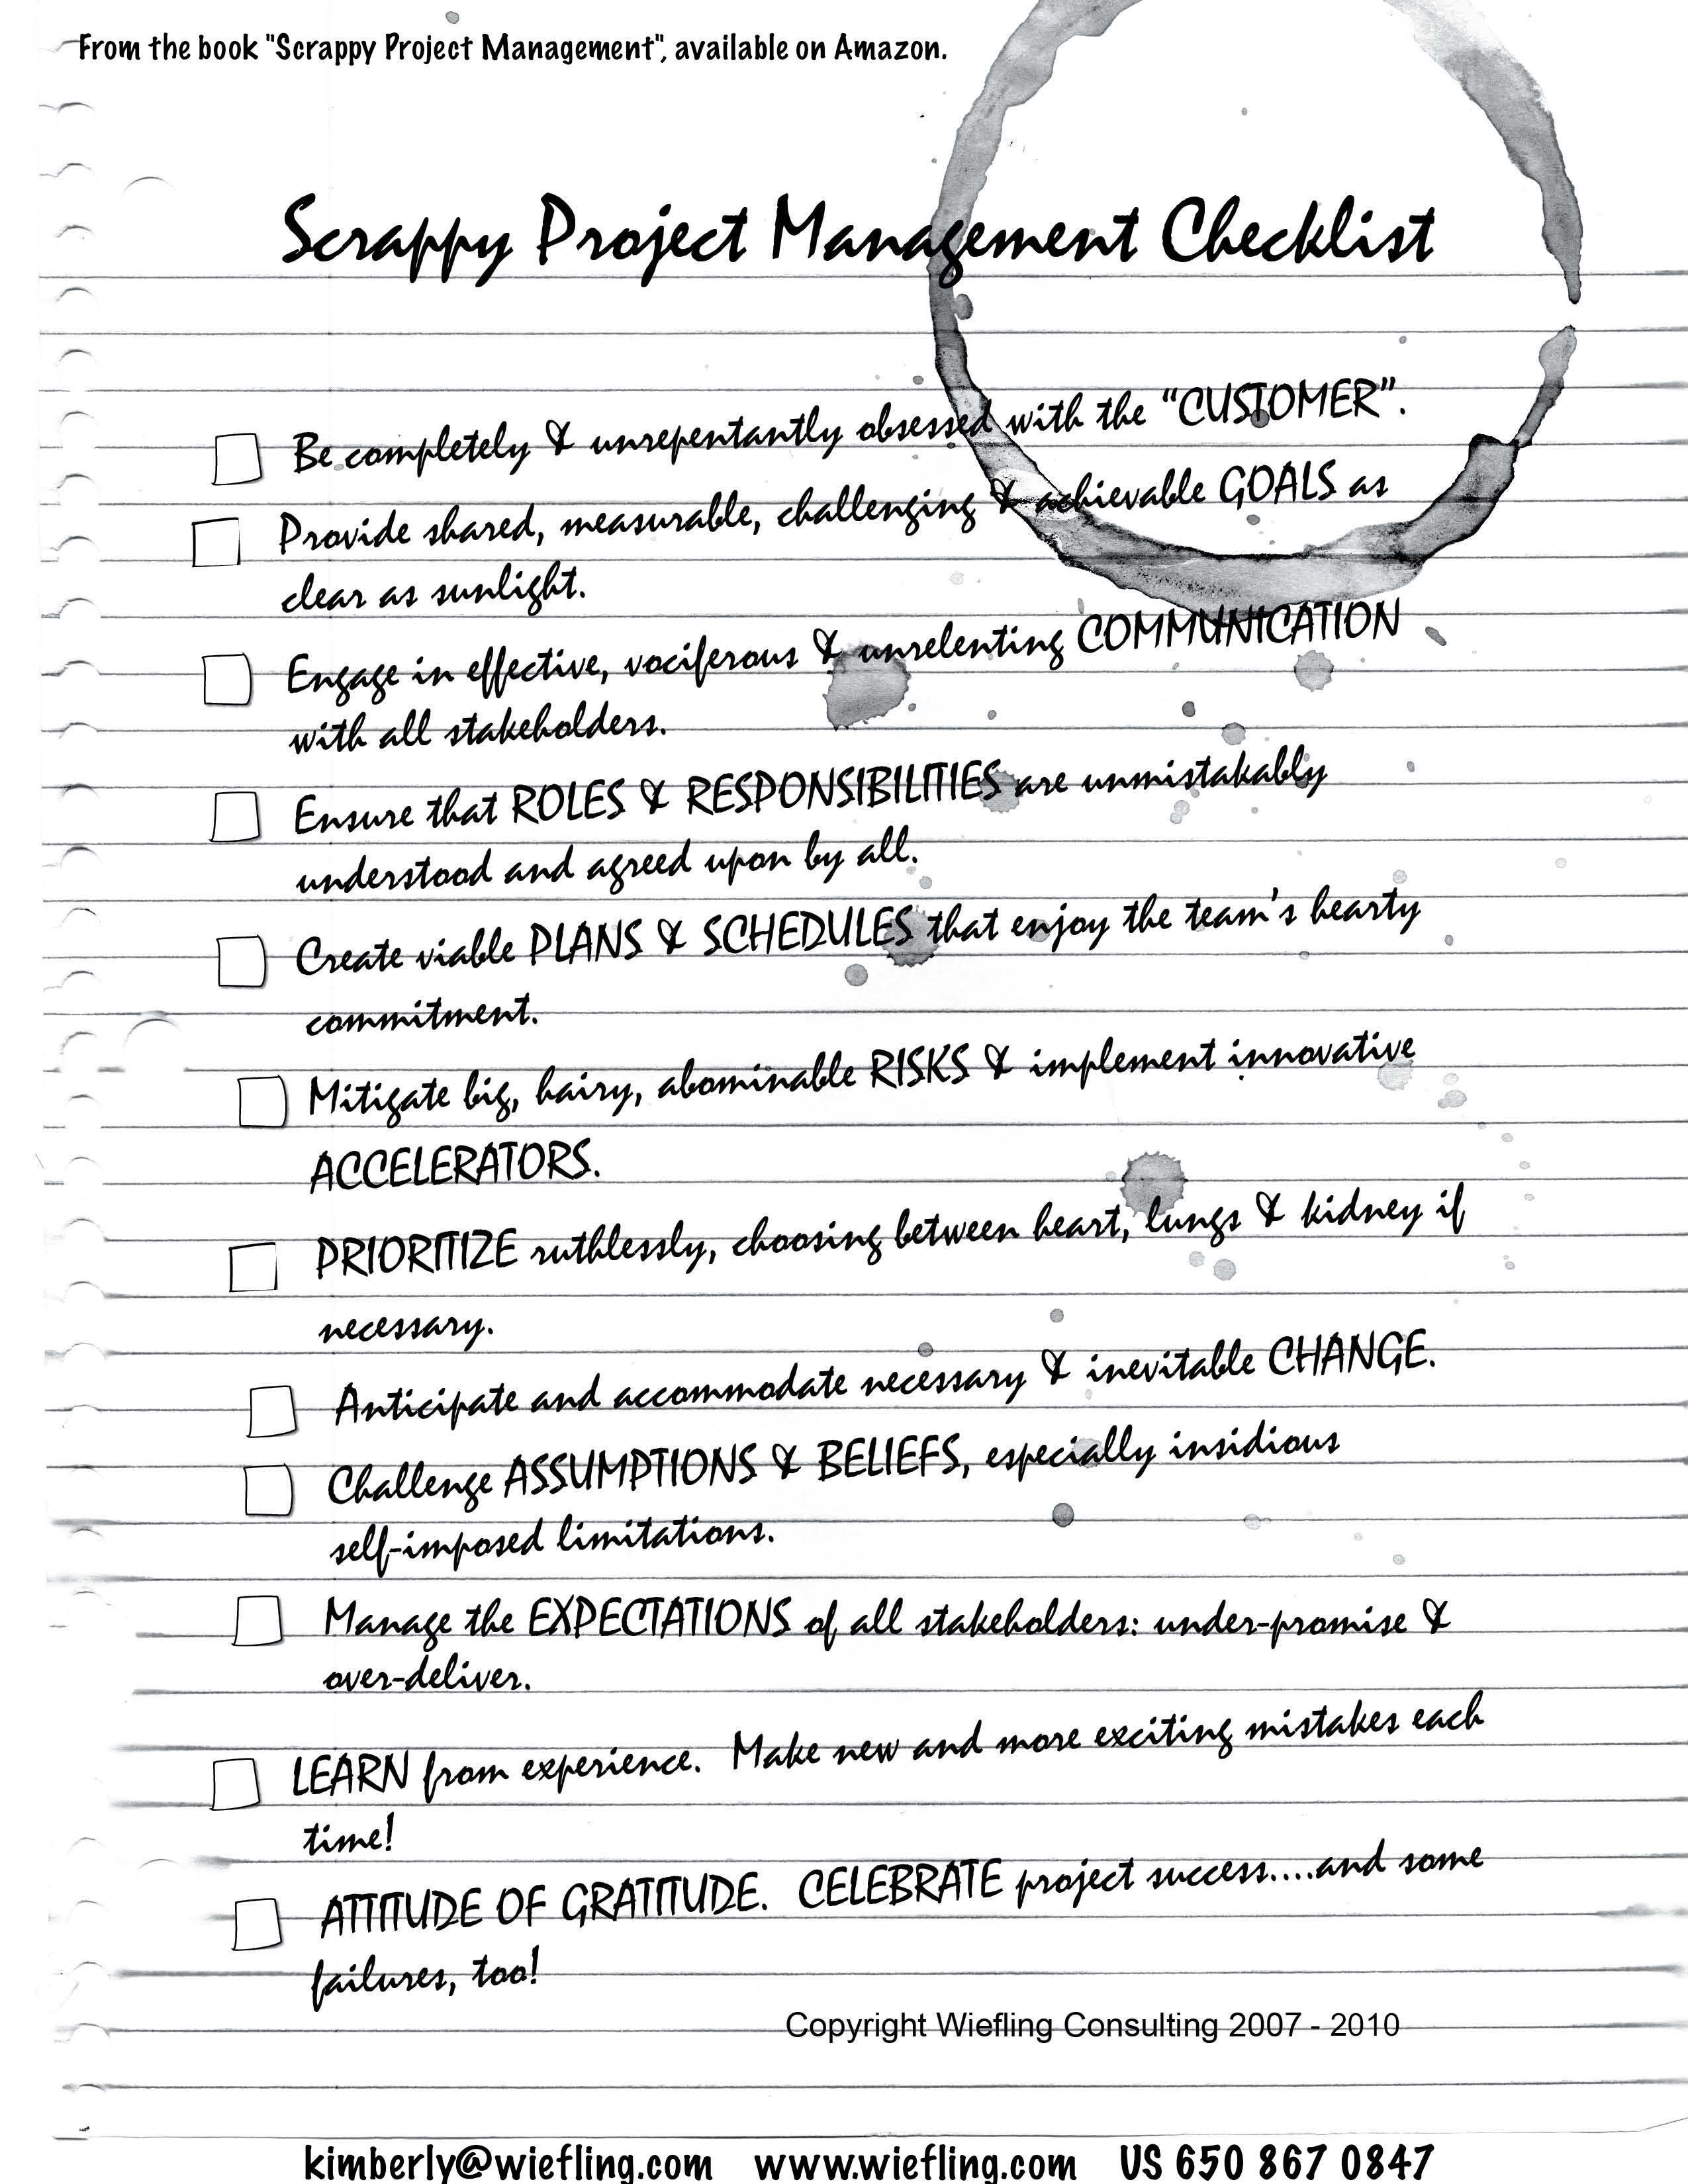 From the book "Scrappy Project Management", available on Amazon.
Scrappy Project Management Checklist
Be completely & unrepentantly obsessed with the “CUSTOMER”.
Provide shared, measurable, challenging & achievable GOALS as
clear as sunlight.
Engage in effective, vociferous & unrelenting COMMUNICATION
with all stakeholders.
Ensure that ROLES & RESPONSIBILITIES are unmistakably
understood and agreed upon by all.
Create viable PLANS & SCHEDULES that enjoy the team's hearty
commitment.
Mitigate big, hairy, abominable RISKS & implement innovative
ACCELERATORS.
PRIORITIZE ruthlessly, choosing between heart, lungs & kidney if
necessary.
Anticipate and accommodate necessary & inevitable CHANGE.
Challenge ASSUMPTIONS & BELIEFS, especially insidious
self-imposed limitations.
Manage the EXPECTATIONS of all stakeholders: under-promise &
over-deliver.
LEARN from experience. Make new and more exciting mistakes each
time!
ATTITUDE OF GRATITUDE. CELEBRATE project success....and some
failures, too!
Copyright Wiefling Consulting 2007 - 2010
kimberly@wiefling.com www.wiefling.com US 650 867 0847